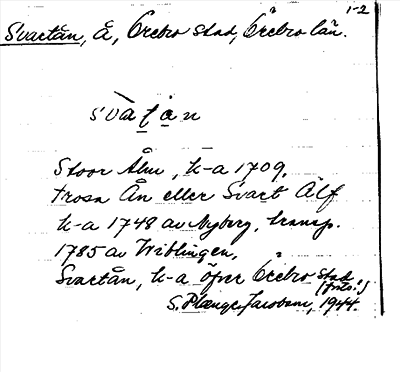 1-2
Svartån, å, Örebro stad, Örebro län.
svàṭạn
Stoor Åhn, k-a 1709.
Trosa Ån eller Svart Älf
k-a 1748 av Nyberg, transp.
1785 av Wiblingen.
Svartån, k-a öfver Örebro stad
S. Jacobson, 1944.